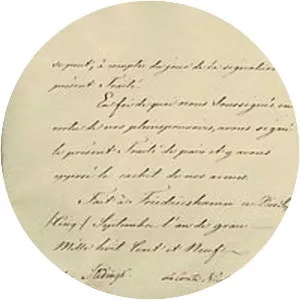 se peut, à compter du jour de la signature
présent Traité.
En foi de quoi nous soussignés, en
vertu de nos pleinspouvoirs, avons signé
le présent Traité de paix et y avons
apposé le cachet de nos armes.
Fait à Friedrichshamm ce
(cinq) Septembre l'an de grace
Mille huit Cent et Neuf.
Stedingk